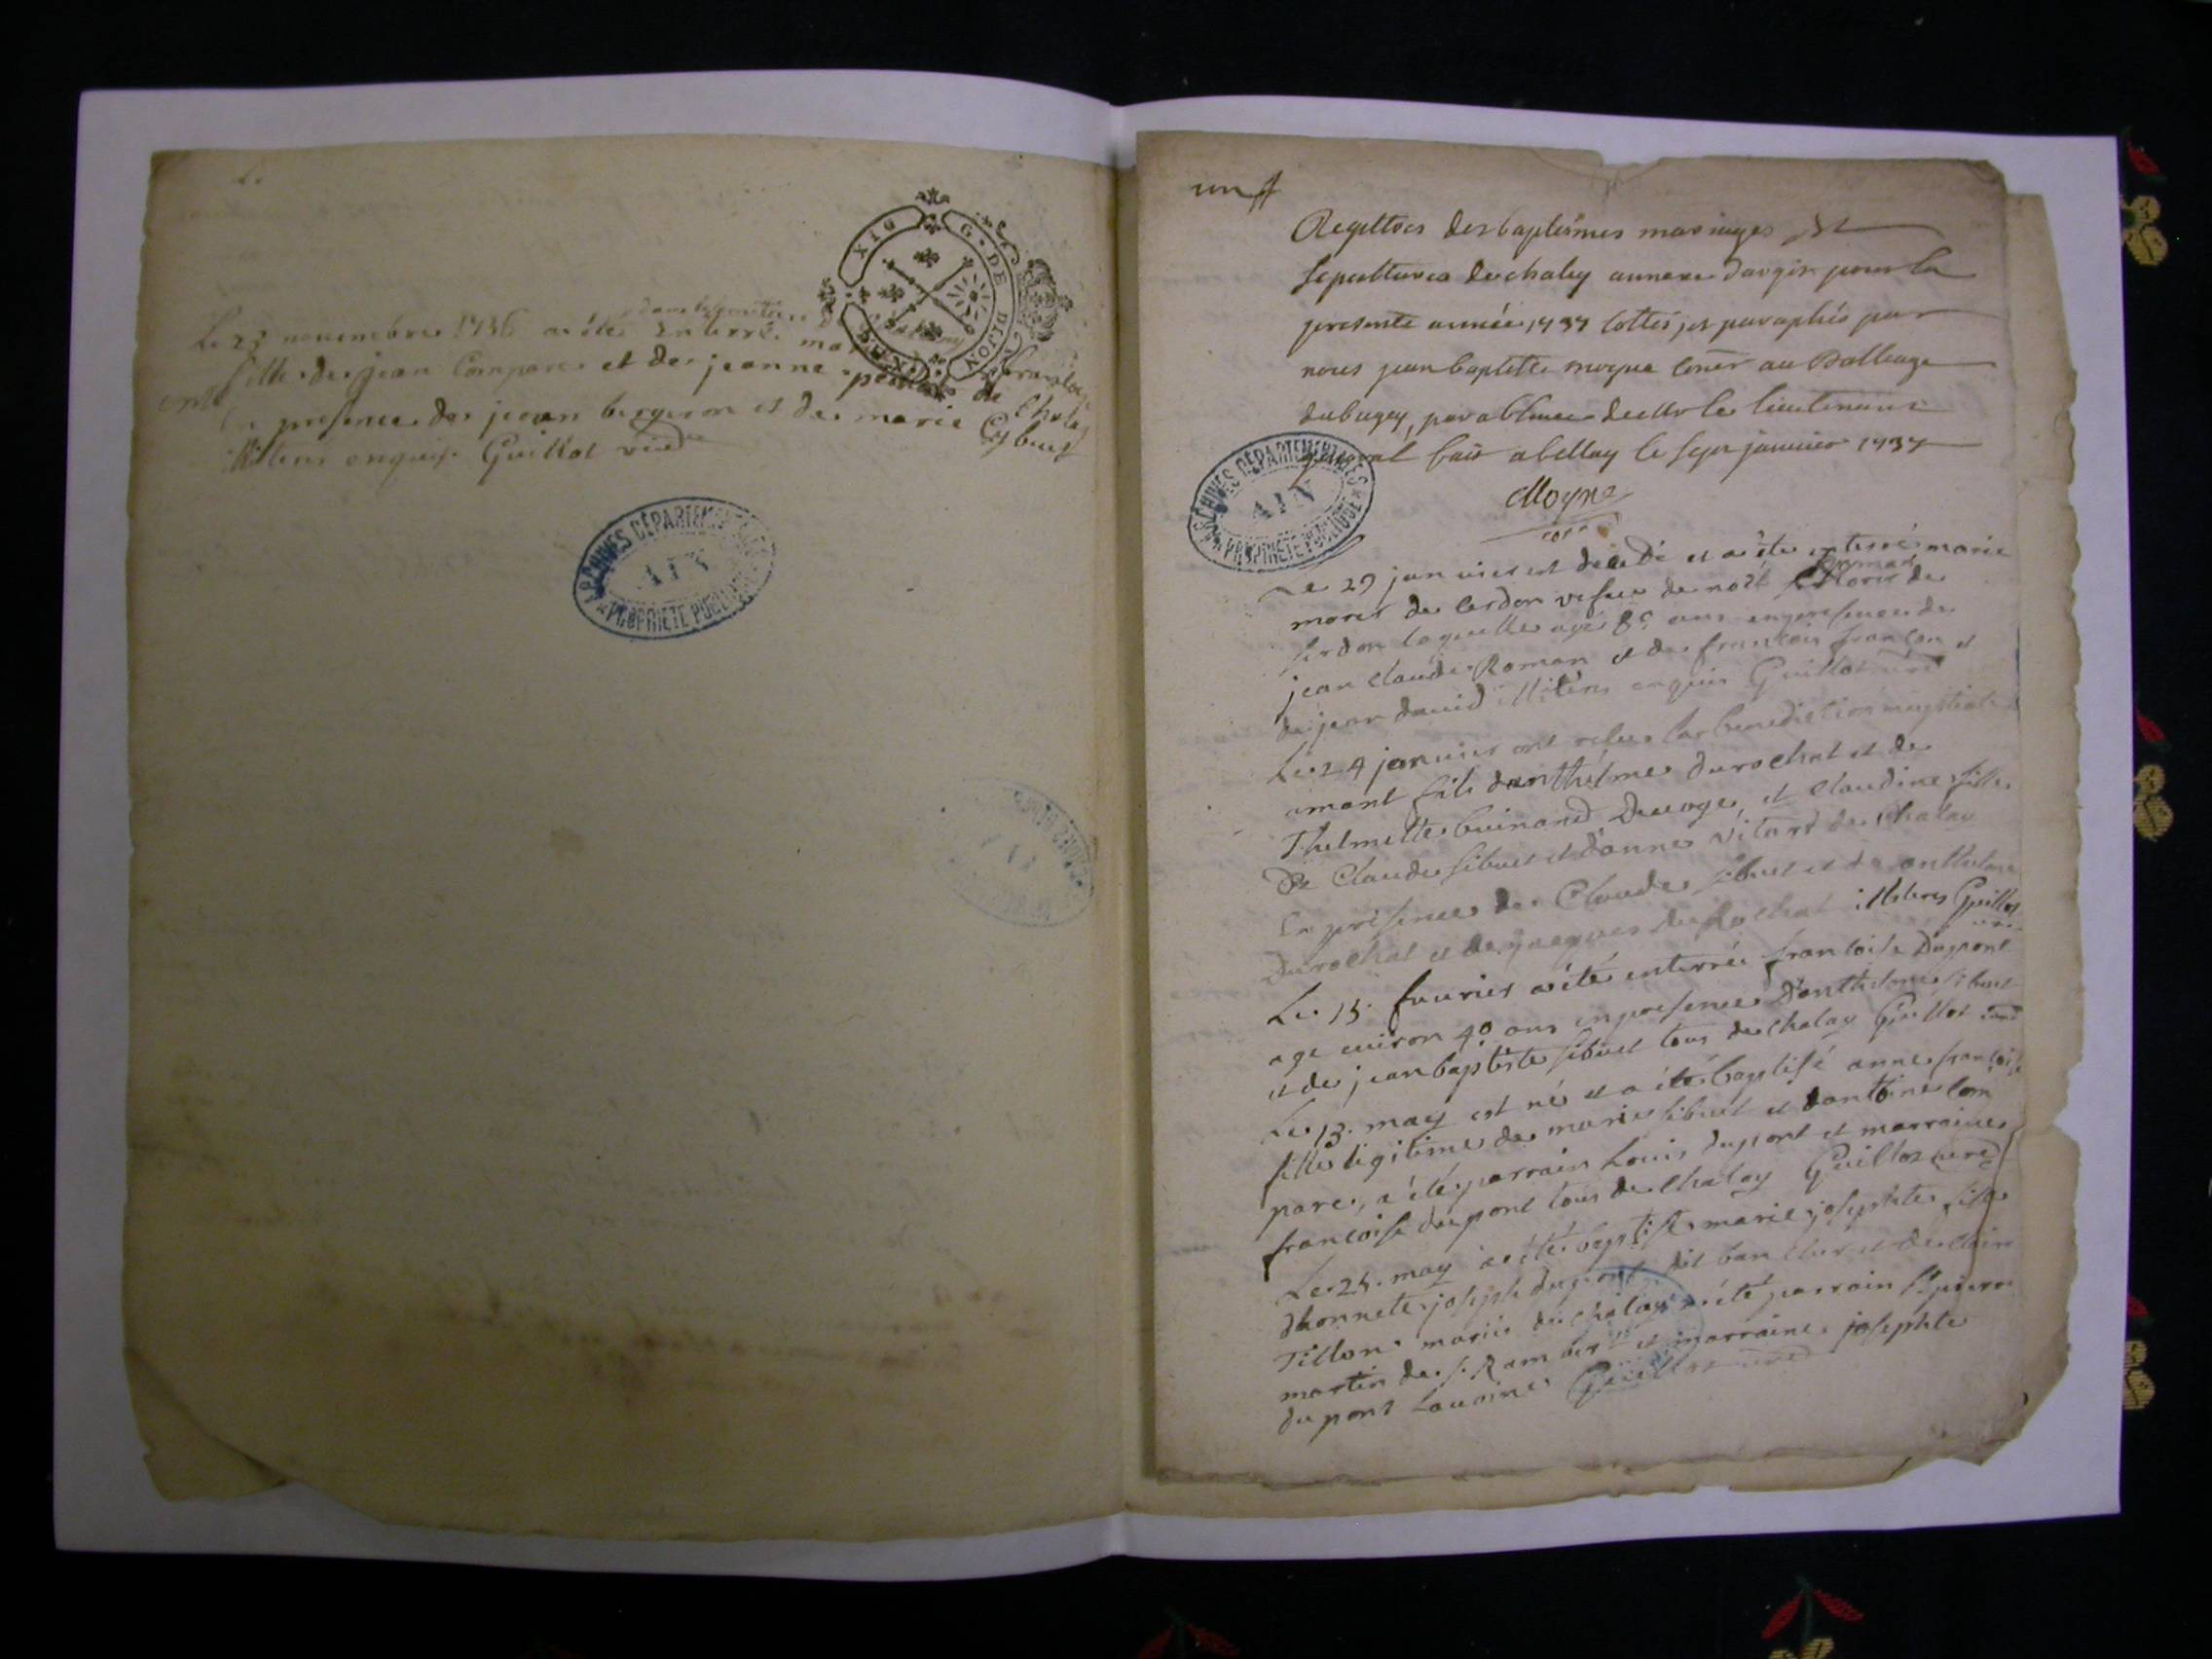 2.
G. DE DIJON
dans le cimetiere de
Le 23 novembre 1736 a été Enterré
fille de jean Compare et de jeanne de Chalay
En presence de jean bergeron et de marie Cybuet
illiteres enquis Guillot curé
ARCHIVES DÉPARTEMENTALES
AIN
PROPRIÉTÉ PUBLIQUE
un
Registres des baptesmes mariages Et
sepultures de chaley annexe dargis pour la
presente année 1737 cottés et paraphés par
nous jean baptiste moyne au Balliage
du bugey, par absence de Mr le lieutenant
general fait a bellay le sept janvier 1737
Moyne
ARCHIVES DÉPARTEMENTALES
AIN
PROPRIÉTÉ PUBLIQUE
Le 29 janvier est decedé et a été enterré marie
morel de cerdon vefue de de
serdon laquelle agé ans en presence de
jean claude Roman et de francois francon et
de jean david illitéres enquis Guillot curé
Le 24 janvier ont reçus la benediction nuptiale
amant fils danthelme durochat et de
Thelmette Guinand et claudine fille
De Claude sibuet et danne vitard de chalay
En présence de Claude sibuet et de anthelme
Durochat et de jacques du Rochat illiteres Guillot
curé
Le 15. feurier a été enterré francoise Dupont
age enuiron 40 ans en presence danthelme sibuet
et de jean baptiste sibuet tous de chalay Guillot curé
Le 13. may est né et a été baptisé anne francoise
fille legitime de marie sibuet et dantoine Com
pare, a été parrain Louis dupont et marraine
francoise dupont tous de chalay Guillot curé
Le 25. may a été baptisé marie josephte fille
dhonnete joseph dupont dit et de clair
Tillon mariés de chalay a été parrain Sr pierre
martin de S. Rambert et marraine josephte
dupont Guillot curé